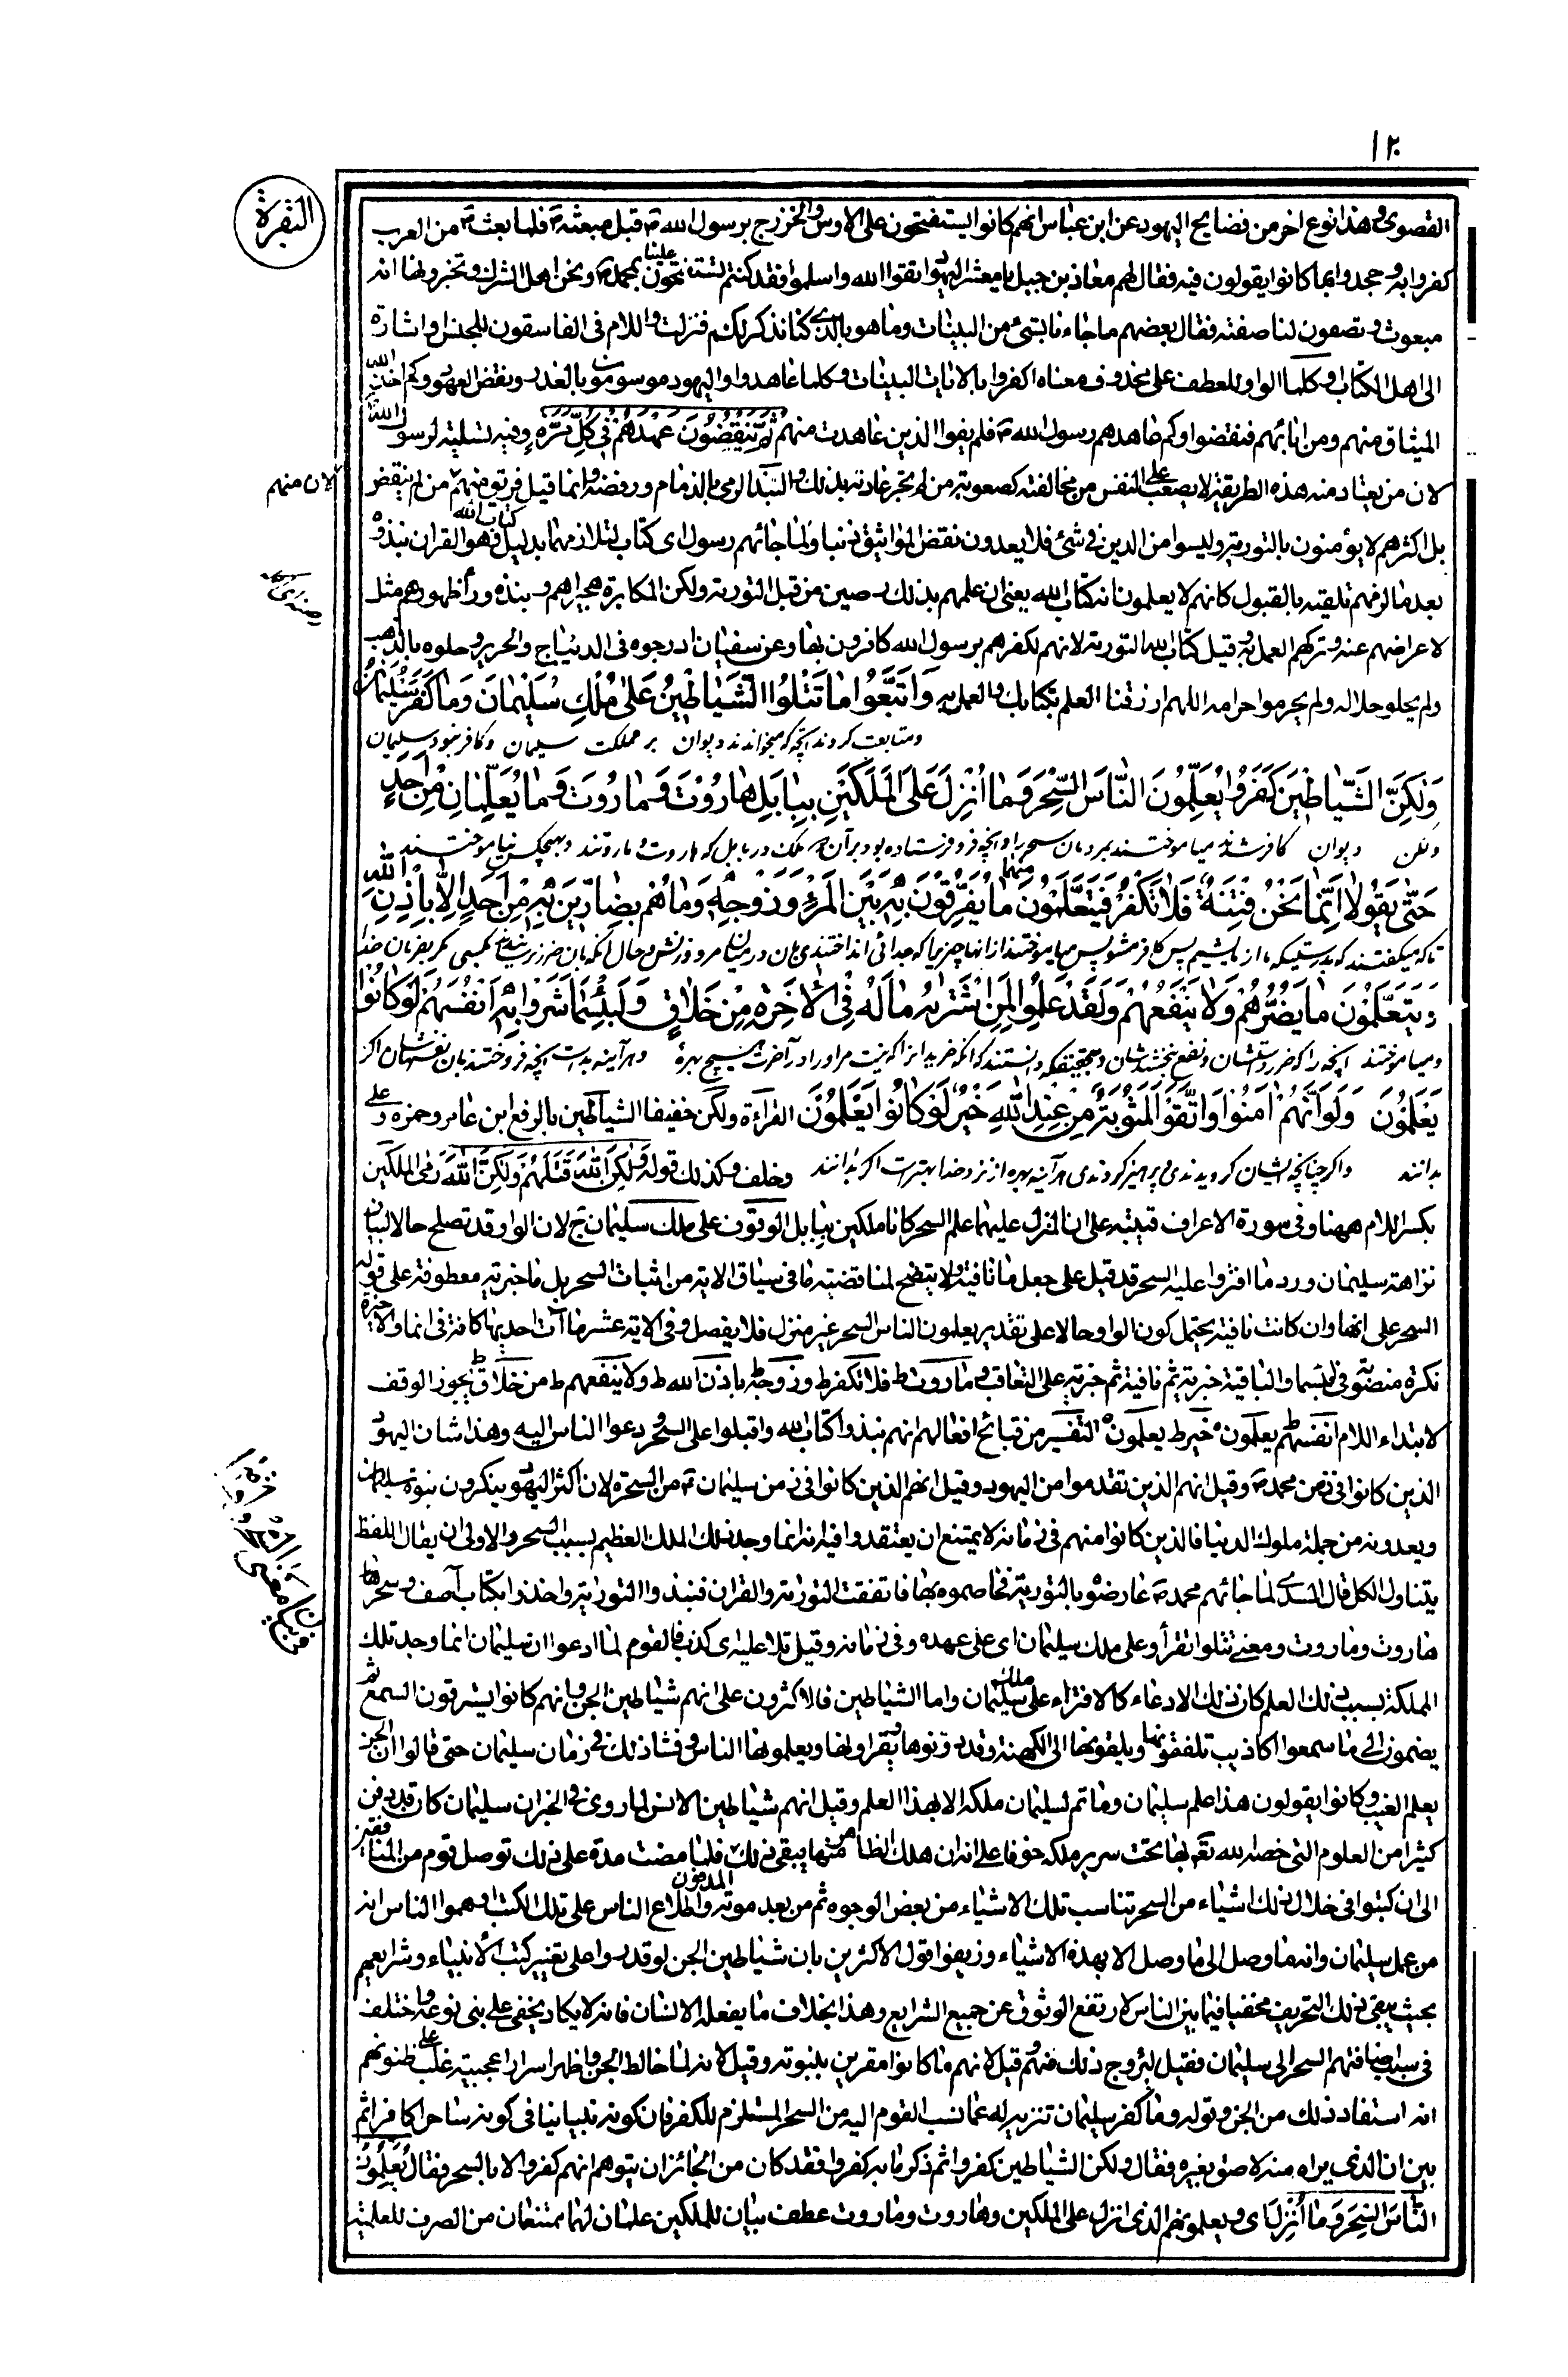 ١٢٠
البقرة
القصوى وهذا نوع اخر من فضايح اليهود عن ابن عباس انهم كانوا يستفتحون على الاوس والخزرج برسول الله ص قبل مبعثه فلما بعث من العرب
كفروا به وجحدوا بما كانوا يقولون فيه فقال لهم معاذ بن جبل يا معشر اليهود اتقوا الله واسلموا فقد كنتم تستفتحون علينا بمحمد ونحن اهل الشرك وتخبروننا انه
مبعوث وتصفون لنا صفته فقال بعضهم ما جاءنا بشئ من البينات وما هو بالذي كنا نذكر لكم فنزلت واللام في الفاسقون للجنس او اشارة
الى اهل الكتاب وكلما الواو للعطف على محذوف معناه اكفروا بالايات البينات وكلما عاهدوا واليهود موسومون بالغدر ونقض العهود وكم اخذ الله
الميثاق منهم ومن ابائهم فنقضوا وكم عاهدهم رسول الله ص فلم يفوا الذين عاهدت منهم ثم ينقضون عهدهم في كل مرة وفيه تسلية لرسول الله
لان من يعتاد منه هذه الطريقة لا يصعب على النفس من مخالفته كصعوبة من لم تجر عادته بذلك والنبذ الرمي بالذمام ورفضه وانما قيل فريق منهم لان منهم من لم ينقض
بل اكثرهم لا يؤمنون بالتورية وليسوا من الدين في شئ فلا يعدون نقض المواثيق ذنبا ولما جائهم رسول اى كتاب لتلازمهما بدليل كتاب الله وهو القران نبذوه
بعد ما لزمهم تلقيه بالقبول كانهم لا يعلمون انه كتاب الله يعنى ان علمهم بذلك رصين من قبل التورية ولكن المكابرة هجيراهم ونبذه وراء ظهورهم مثل
لاعراضهم عنه وتركهم العمل به وقيل كتاب الله التورية لانهم لكفرهم برسول الله كافرون بها وعن سفيان ادرجوه في الديباج والحرير وحلوه بالذهب
ولم يحلوا حلاله ولم يحرموا حرامه اللهم ارزقنا العلم بكتابك والعمل به وَاتَّبَعُوا مَا تَتْلُوا الشَّيَاطِينُ عَلَى مُلْكِ سُلَيْمَانَ وَمَا كَفَرَ سُلَيْمَانُ
ومتابعت كردند آنچه كه ميخواندند ديوان بر مملكت سليمان وكافر نبود سليمان
وَلَكِنَّ الشَّيَاطِينَ كَفَرُوا يُعَلِّمُونَ النَّاسَ السِّحْرَ وَمَا أُنْزِلَ عَلَى الْمَلَكَيْنِ بِبَابِلَ هَارُوتَ وَمَارُوتَ وَمَا يُعَلِّمَانِ مِنْ أَحَدٍ
ولكن ديوان كافر شدند مياموختند بمردمان سحر را وآنچه فرو فرستاده بود بر آن دو ملك در بابل كه هاروت و ماروتند و بهيچكس نياموختند
حَتَّى يَقُولَا إِنَّمَا نَحْنُ فِتْنَةٌ فَلَا تَكْفُرْ فَيَتَعَلَّمُونَ مِنْهُمَا مَا يُفَرِّقُونَ بِهِ بَيْنَ الْمَرْءِ وَزَوْجِهِ وَمَا هُمْ بِضَارِّينَ بِهِ مِنْ أَحَدٍ إِلَّا بِإِذْنِ اللَّهِ
وَيَتَعَلَّمُونَ مَا يَضُرُّهُمْ وَلَا يَنْفَعُهُمْ وَلَقَدْ عَلِمُوا لَمَنِ اشْتَرَاهُ مَا لَهُ فِي الْآخِرَةِ مِنْ خَلَاقٍ وَلَبِئْسَ مَا شَرَوْا بِهِ أَنْفُسَهُمْ لَوْ كَانُوا
يَعْلَمُونَ وَلَوْ أَنَّهُمْ آمَنُوا وَاتَّقَوْا لَمَثُوبَةٌ مِنْ عِنْدِ اللَّهِ خَيْرٌ لَوْ كَانُوا يَعْلَمُونَ القراءة ولكن خفيفا الشياطين بالرفع ابن عامر وحمزة وعلى
بدانند واگر چنانچه ايشان گرويدندى وپرهيز كردندى هر آينه بهره از نزد خدا بهتر است اگر بدانند وخلف وكذلك قوله ولكن الله قتلهم ولكن الله رمى الملكين
بكسر اللام ههنا وفي سورة الاعراف قتيبة على ان المنزل عليهما علم السحر كانا ملكين ببابل الوقوف على ملك سليمان ج لان الواو قد تصلح حالا لبيان
نزاهة سليمان ورد ما افتروا عليه السحر قد قيل على جعل ما نافية ولا يتضح لمناقضته ما في سياق الاية من اثبات السحر بل ما خبرية معطوفة على قوله
السحر على انها وان كانت نافية يحتمل كون الواو حالا على تقدير يعلمون الناس السحر غير منزل فلا يفصل وفي الاية عشر ماآت احديها كافة في انما والاخيرة
نكرة منصوبة في لبئسما والباقية خبرية ثم نافية ثم خبرية على التعاقب وماروت ط فلا تكفر ط وزوجه ط باذن الله ط ولا ينفعهم ط من خلاق ط يجوز الوقف
لابتداء اللام انفسهم ط يعلمون ه خير ط يعلمون ه التفسير من قبائح افعالهم انهم نبذوا كتاب الله واقبلوا على السحر ودعوا الناس اليه وهذا شان اليهود
الذين كانوا في زمن محمد ص وقيل انهم الذين تقدموا من اليهود وقيل انهم الذين كانوا في زمن سليمان من السحرة لان اكثر اليهود ينكرون نبوة سليمان
ويعدونه من جملة ملوك الدنيا فالذين كانوا منهم في زمانه لا يمتنع ان يعتقدوا فيه انه انما وجد ذلك الملك العظيم بسبب السحر والاولى ان يقال اللفظ
يتناول الكل قال السدي لما جائهم محمد ص عارضوه بالتورية فخاصموه بها فاتفقت التورية والقران فنبذوا التورية واخذوا بكتاب آصف وسحر
هاروت وماروت ومعنى تتلوا تقرأ وعلى ملك سليمان اى على عهده وفي زمانه وقيل تلا عليه اى كذب فالقوم لما ادعوا ان سليمان انما وجد تلك
المملكة بسبب ذلك العلم كان ذلك الادعاء كالافتراء على ملك سليمان واما الشياطين فالاكثرون على انهم شياطين الجن وانهم كانوا يسترقون السمع ثم
يضمون الى ما سمعوا اكاذيب تلفقونها ويلقونها الى الكهنة وقد دونوها يقرؤنها ويعلمونها الناس وفشا ذلك في زمان سليمان حتى قالوا ان الجن
يعلم الغيب وكانوا يقولون هذا علم سليمان وما تم لسليمان ملكه الا بهذا العلم وقيل انهم شياطين الانس لما روى في الخبر ان سليمان كان قد دفن
كثيرا من العلوم التي خصه الله تعالى بها تحت سرير ملكه خوفا على انه ان هلك الظاهر منها يبقى ذلك المدفون فلما مضت مدة على ذلك توصل قوم من المنافقين
الى ان كتبوا في خلال ذلك اشياء من السحر تناسب تلك الاشياء من بعض الوجوه ثم من بعد موته واطلاع الناس على تلك الكتب اوهموا الناس انه
من عمل سليمان وانه ما وصل الى ما وصل الا بهذه الاشياء وزيفوا قول الاكثرين بان شياطين الجن لو قدروا على تغيير كتب الانبياء وشرايعهم
بحيث يبقى ذلك التحريف مخفيا فيما بين الناس لارتفع الوثوق عن جميع الشرايع وهذا بخلاف ما يفعله الانسان فانه لا يكاد يخفى على بنى نوعه واختلف
في سبب اضافتهم السحر الى سليمان فقيل ليروج ذلك منهم وقيل لانهم ما كانوا مقرين بنبوته وقيل لانه لما خالط الجن واظهر اسرارا عجيبة غلب على ظنونهم
انه استفاد ذلك من الجن وقوله وما كفر سليمان تنزيه له عما نسب القوم اليه من السحر المستلزم للكفر فان كونه نبيا ينافى كونه ساحرا كافرا ثم
بين ان الذي براه منه لاصق بغيره فقال ولكن الشياطين كفروا ثم ذكر ما به كفروا فقد كان من الجائز ان يتوهم انهم كفروا لا بالسحر فقال يعلمون
الناس السحر وما انزل اى ويعلمونهم الذي انزل على الملكين وهاروت وماروت عطف بيان للملكين علمان لهما ممتنعان من الصرف للعلمية